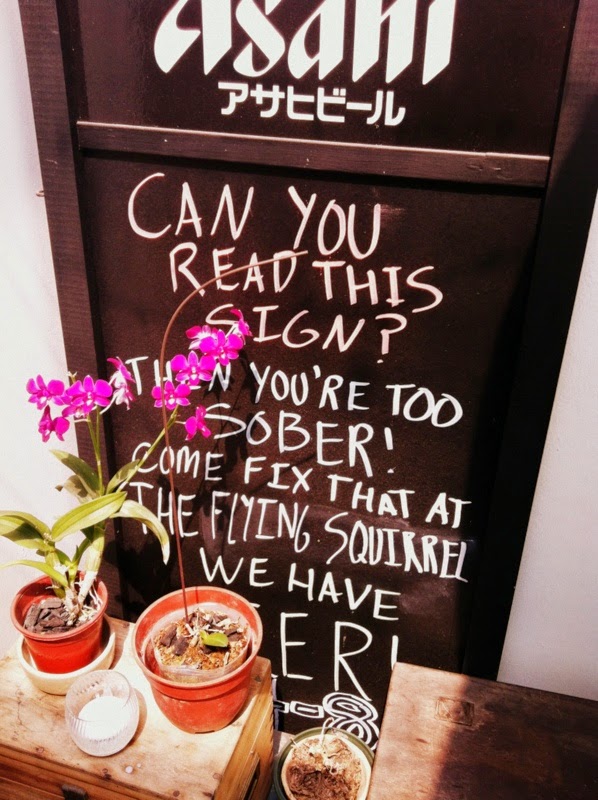 Asahi
アサヒビール
CAN YOU
READ THIS
SIGN?
THEN YOU'RE TOO
SOBER!
COME FIX THAT AT
THE FLYING SQUIRREL
WE HAVE
BEER!